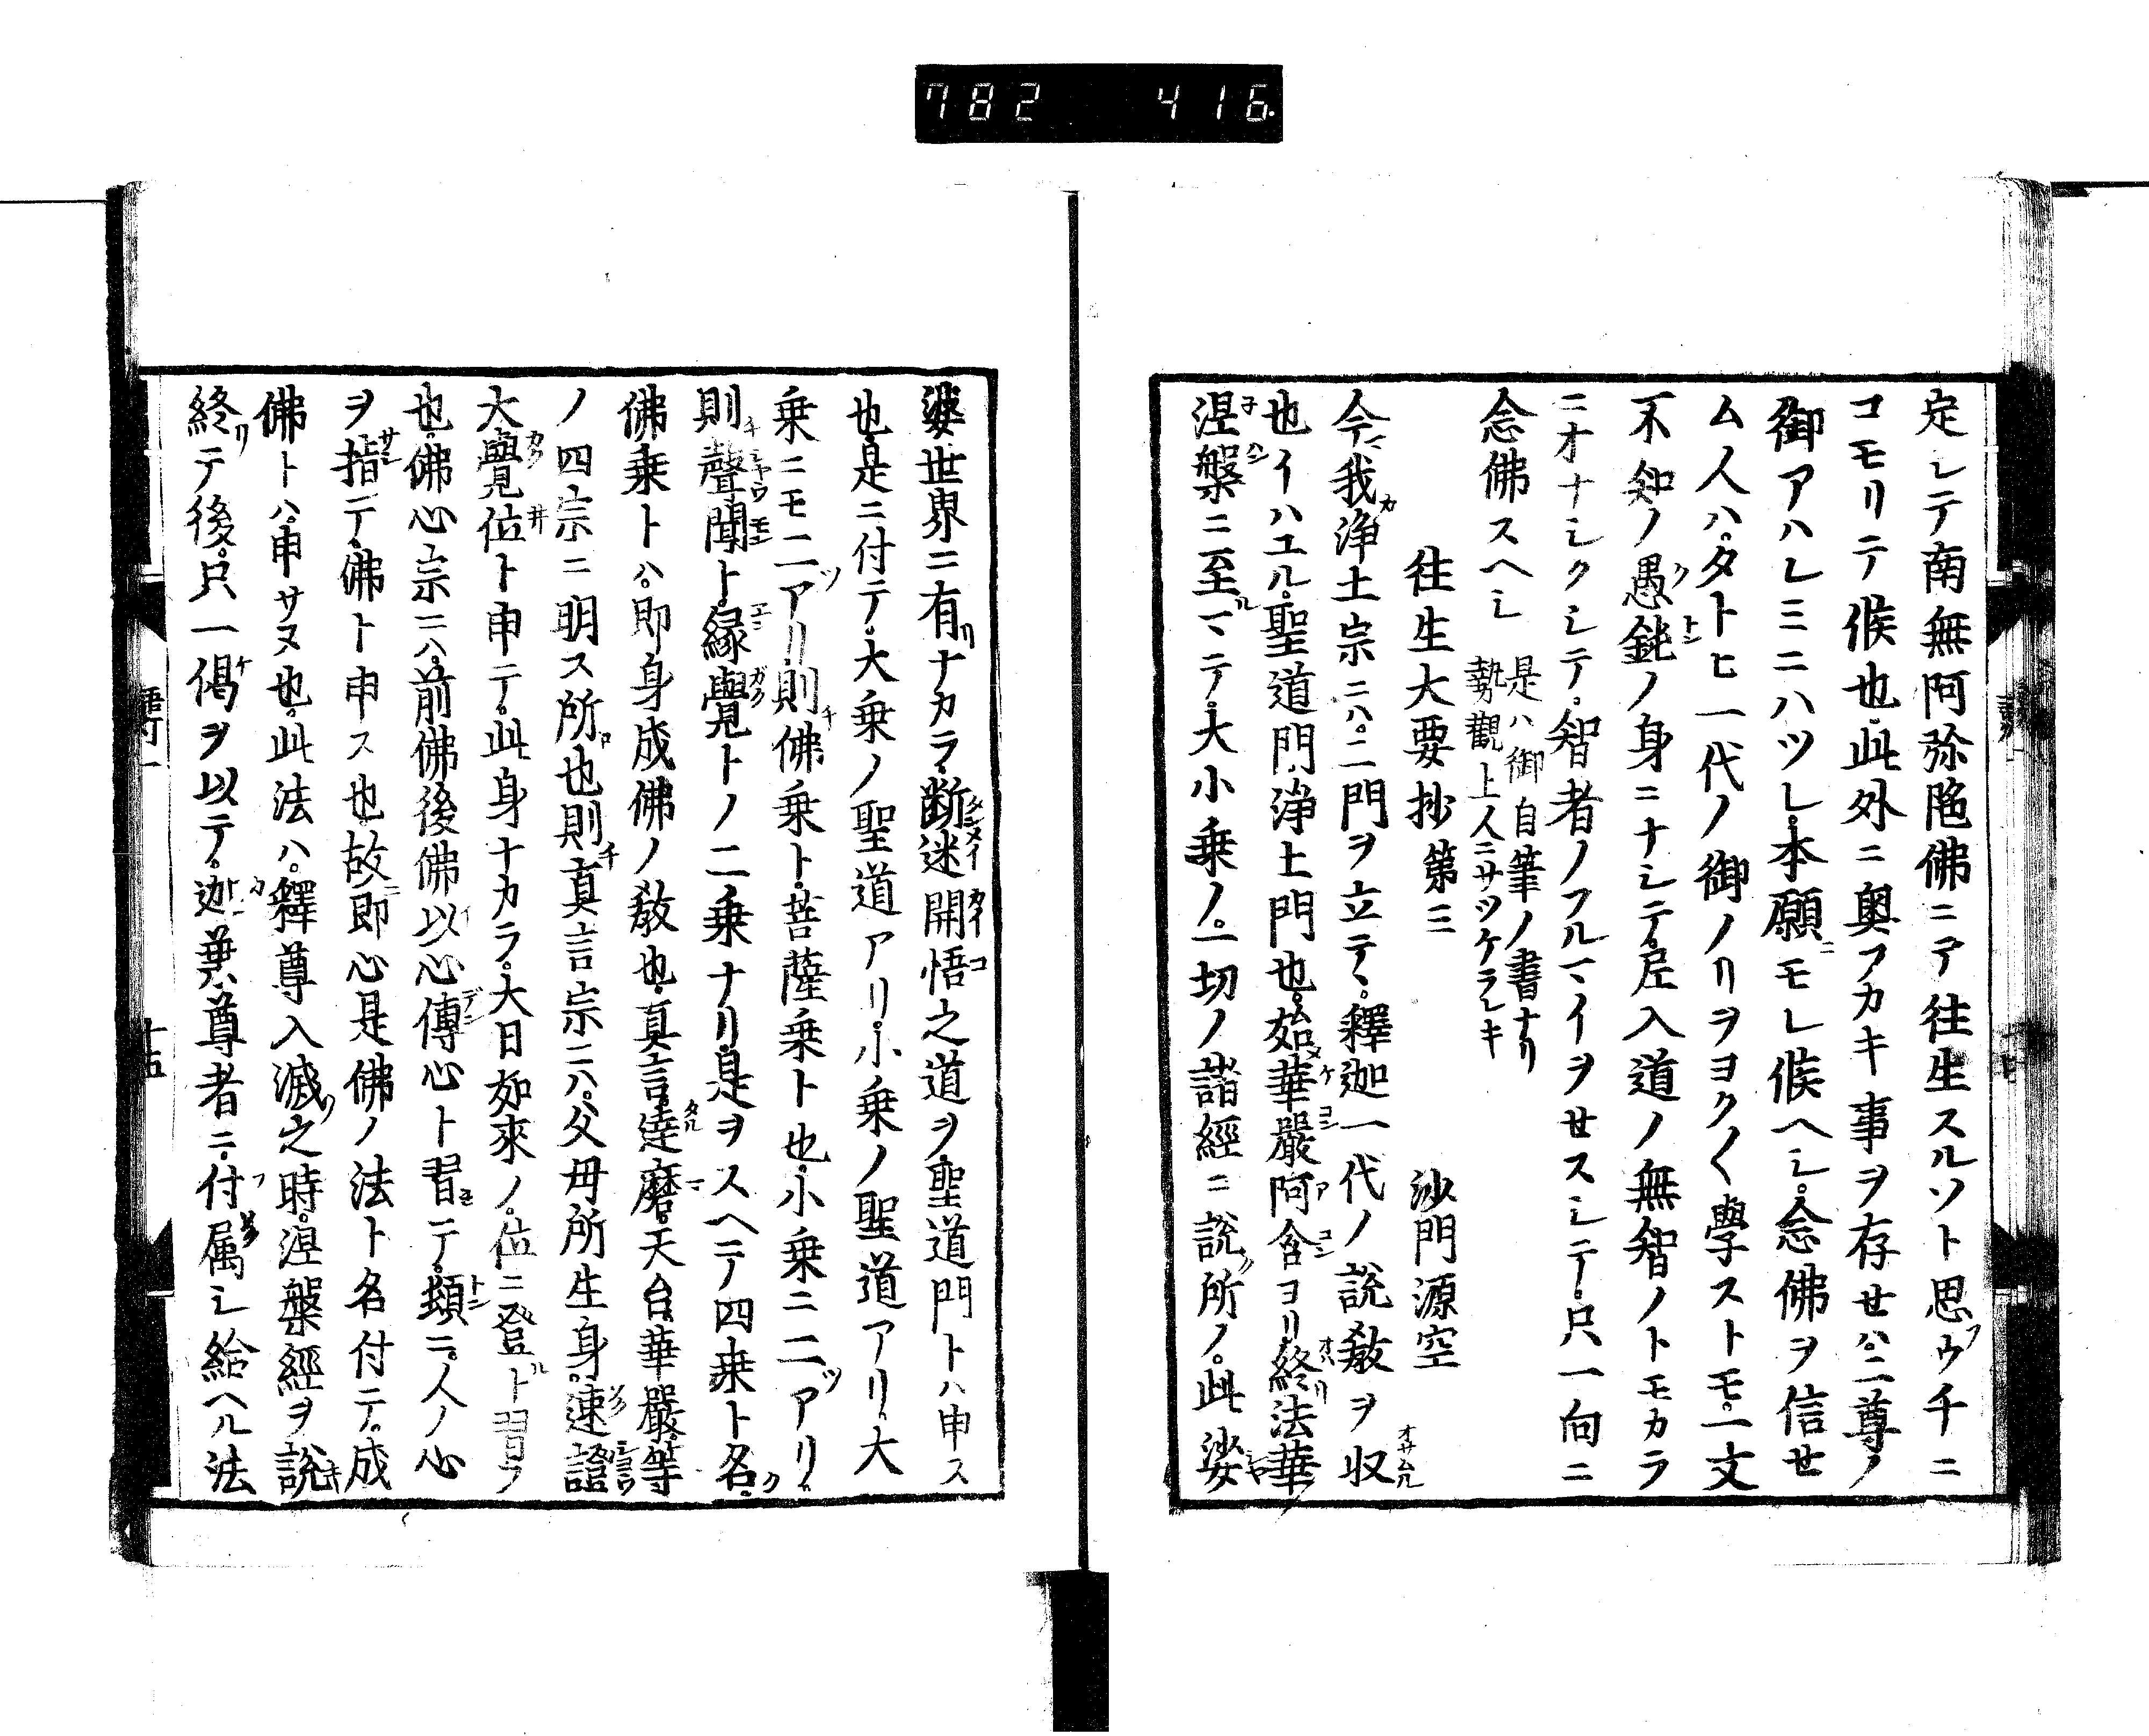 782 416
定シテ南無阿弥陀佛ニテ往生スルソト思ウチニ
コモリテ候也此外ニ奥フカキ事ヲ存セハ二尊ノ
御アハレミニハツレ本願モレ候ヘシ念佛ヲ信セ
ム人ハタトヒ一代ノ御ノリヲヨク〱學ストモ一文
不知ノ愚鈍ノ身ニナシテ尼入道ノ無智ノトモカラ
ニオナシクシテ智者ノフルマイヲセスシテ只一向ニ
念佛スヘシ
是ハ御自筆ノ書ナリ
勢觀上人ニサツケラレキ
往生大要抄第三 沙門源空
今我浄土宗ニハ二門ヲ立テヽ釋迦一代ノ説教ヲ収
也イハユル聖道門浄土門也始華嚴阿含ヨリ終法華
涅槃ニ至マテ大小乗ノ一切ノ諸經ニ説所ノ此娑
婆世界ニ有ナカラ断迷開悟之道ヲ聖道門トハ申ス
也是ニ付テ大乗ノ聖道アリ小乗ノ聖道アリ大
乗ニモ二アリ則佛乗ト菩薩乗ト也小乗ニ二アリ
則聲聞ト縁覺トノ二乗ナリ是ヲスヘテ四乗ト名
佛乗トハ即身成佛ノ教也真言達磨天台華嚴等
ノ四宗ニ明ス所也則真言宗ニハ父母所生身速證
大覺位ト申テ此身ナカラ大日如來ノ位ニ登ト習フ
也佛心宗ニハ前佛後佛以心傳心ト習テ頓ニ人ノ心
ヲ指テ佛ト申ス也故即心是佛ノ法ト名付テ成
佛トハ申サヌ也此法ハ釋尊入滅之時涅槃經ヲ説
終テ後只一偈ヲ以テ迦葉尊者ニ付属シ給ヘル法
十五